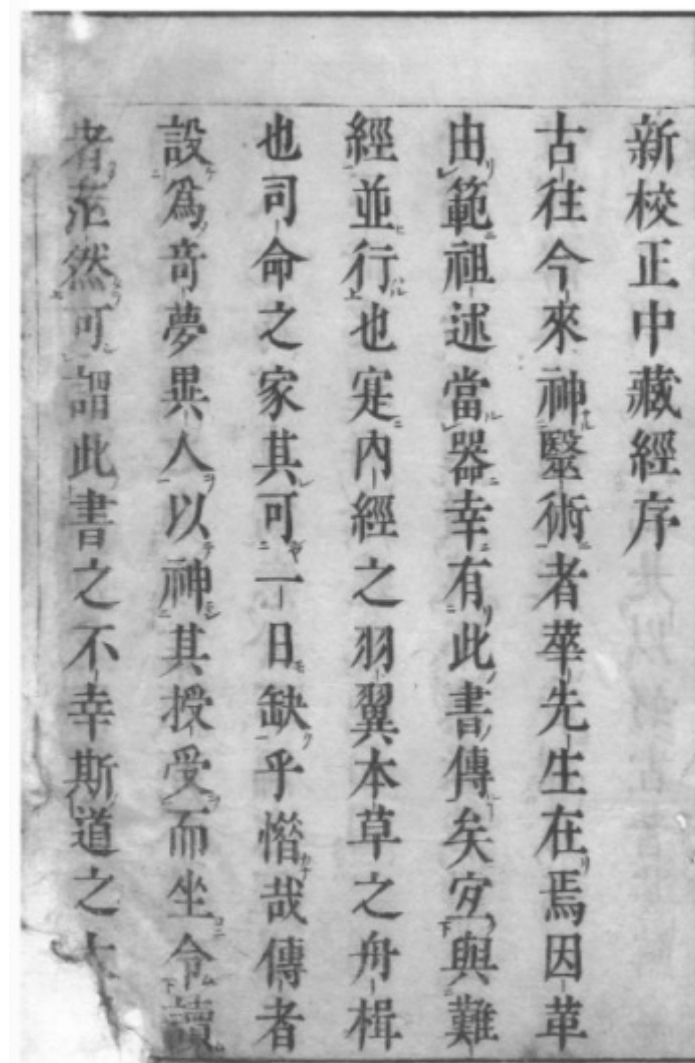 新校正中藏經序
古往今來神毉術者華先生在焉因革
由範祖述當器幸有此書傳矣宜與難
經並行也寔內經之羽翼本草之舟楫
也司命之家其可一日缺乎憯哉傳者
設爲奇夢異人以神其授受而坐令讀
者茫然可謂此書之不幸斯道之大